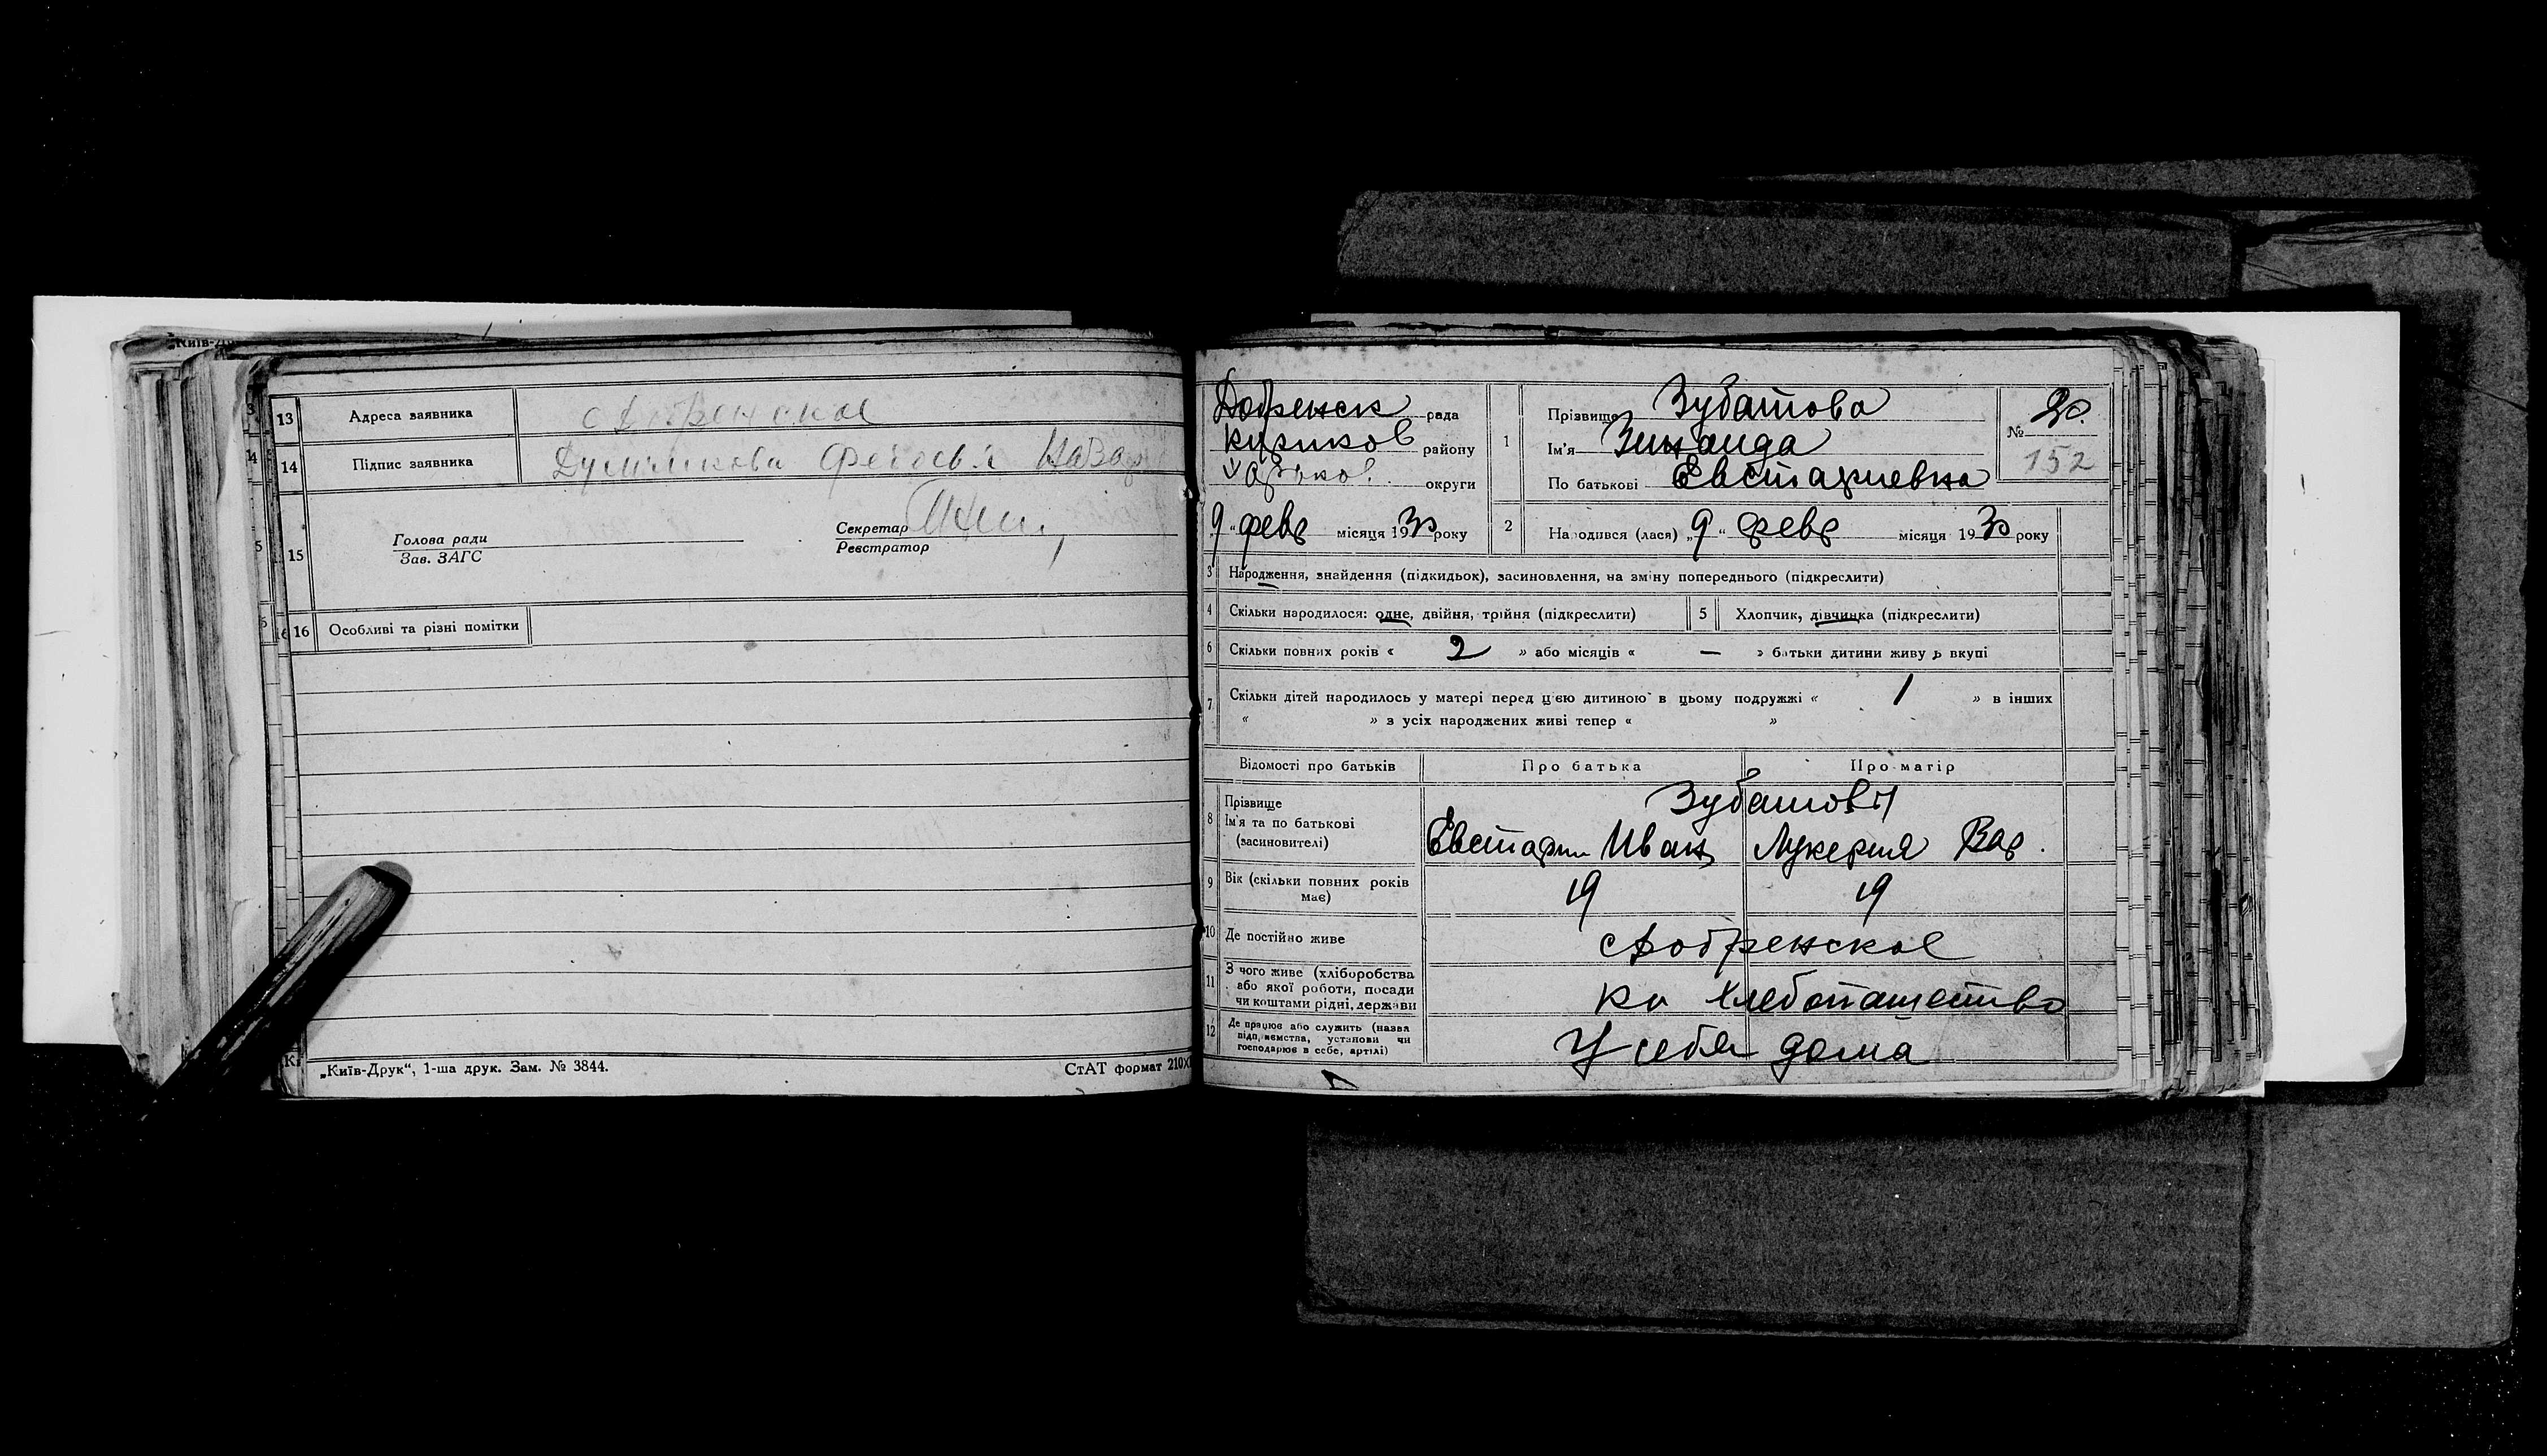 „Київ-Др
13 Адреса заявника с Добренское
14 Підпис заявника
15 Голова ради
Зав. ЗАГС
Секретар
Реєстратор
16 Особливі та різні помітки
„Київ-Друк“, 1-ша друк. Зам. № 3844. СтАТ формат 210X
Добренск рада
району
Харьков. округи
9 " февр місяця 1930 року
1 Прізвище Зубатова
Ім'я Зинаида
По батькові Евстафиевна
№ 20.
152
2 Народився (лася) „9 “ февр місяця 1930 року
3 Народження, знайдення (підкидьок), засиновлення, на зміну попереднього (підкреслити)
4 Скільки народилося: одне, двійня, трійня (підкреслити) 5 Хлопчик, дівчинка (підкреслити)
6 Скільки повних років « 2 » або місяців « — » батьки дитини живуть вкупі
7 Скільки дітей народилось у матері перед цією дитиною в цьому подружжі « 1 » в інших
« » з усіх народжених живі тепер « »
Відомості про батьків Про батька Про матір
8 Прізвище
Ім'я та по батькові
(засиновителі)
Зубатовы
Евстафи Иван Лукерия Вар.
9 Вік (скільки повних років має) 19 19
10 Де постійно живе с Добренское
11 З чого живе (хліборобства
або якої роботи, посади
чи коштами рідні, держави
хлебопашество
12 Де працює або служить (назва
підприємства, установи чи
господарює в себе, артілі)
У себя дома